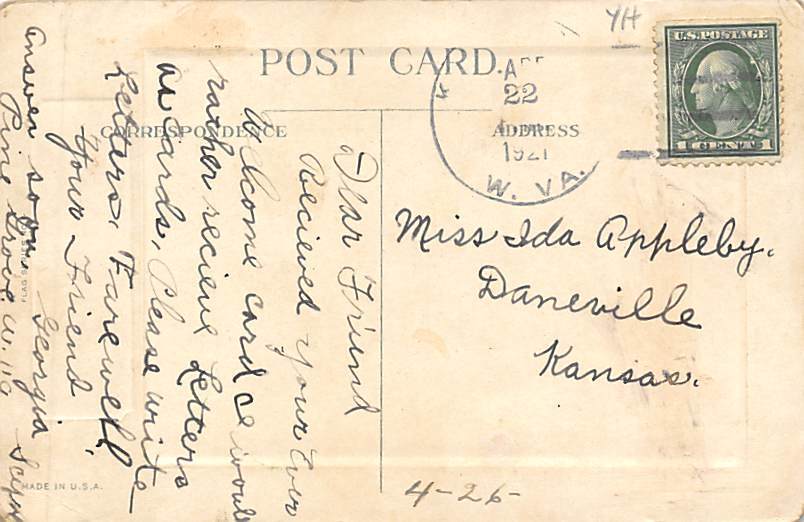 POST CARD.
CORRESPONDENCE
ADDRESS
YH
U.S. POSTAGE
1 CENT 1
22
1921
W. VA.
Dear Friend
Recieved your Ever
Welcome card & would
rather recieve letters
as cards, Please write
Letters, Farewell
Your Friend,
Georgia
answer soon,
Pine Grove W. Va
Miss Ida Appleby.
Daneville
Kansas.
4-26-
MADE IN U.S.A.